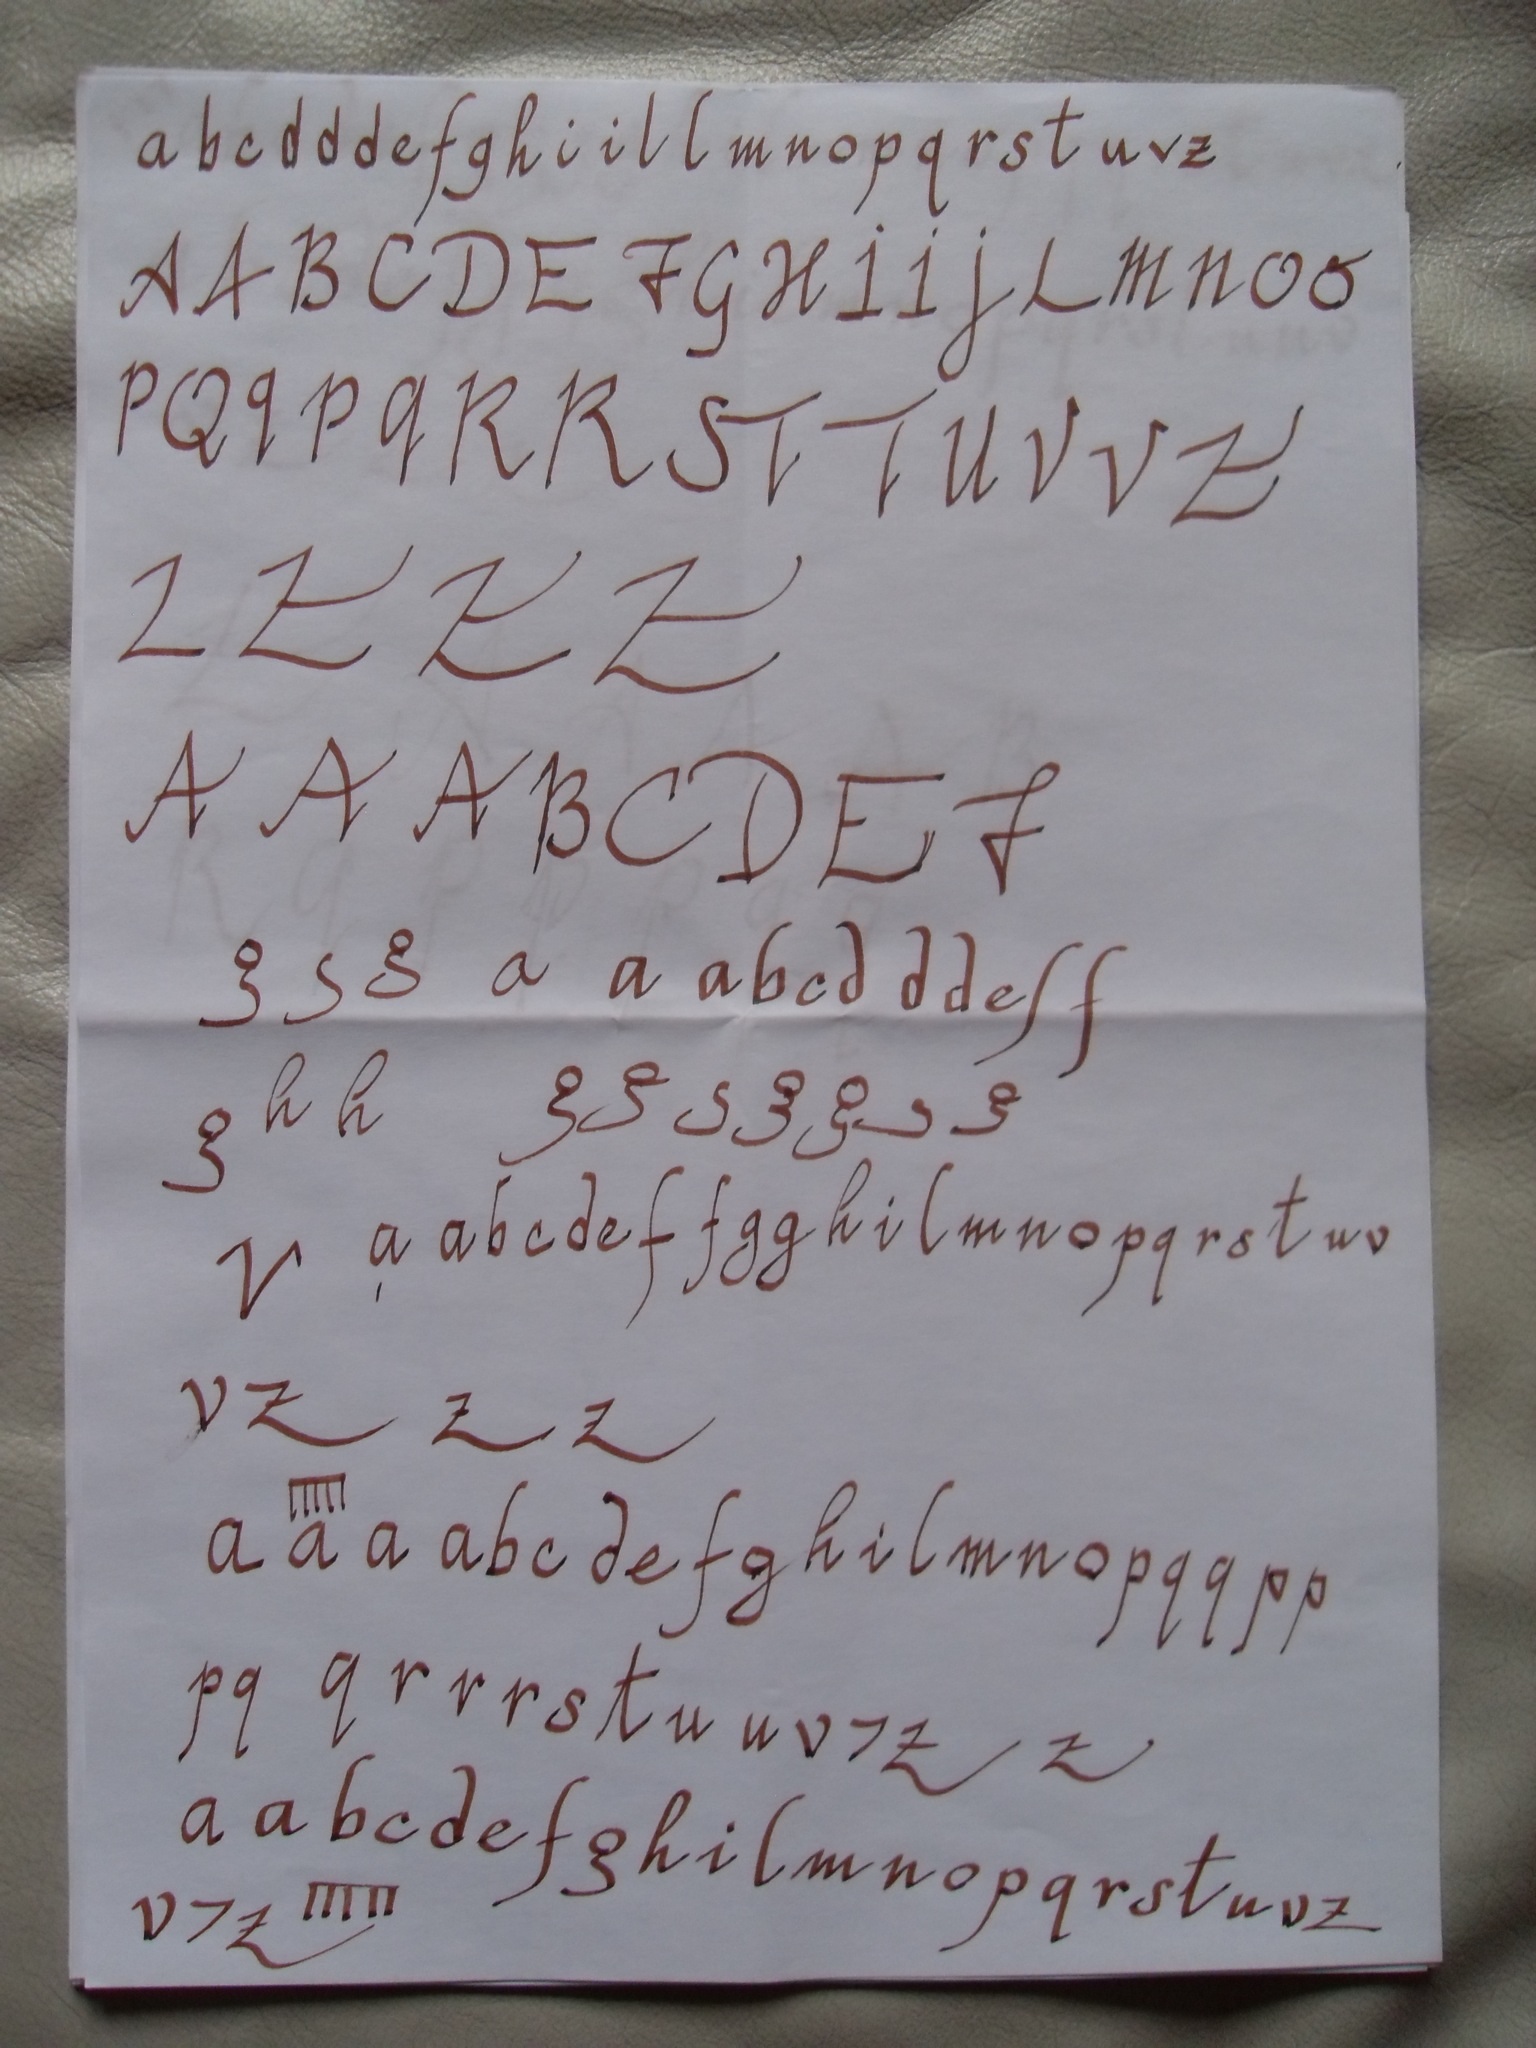 abcdddefghiillmnopqrstuvz
AABCDEFGHIijLMNOO
PQqPqRRSTTUVVZ
ZZZZ
AAABCDEF
g s g a a abcdddeff
g h h g g s g g s g
V a abcdeffgghilmnopqrstuv
vz z z
a a a abcdefghilmnopqqpp
pq qrrrstuuvvz z
aabcdefghilmnopqrstuvz
vvz